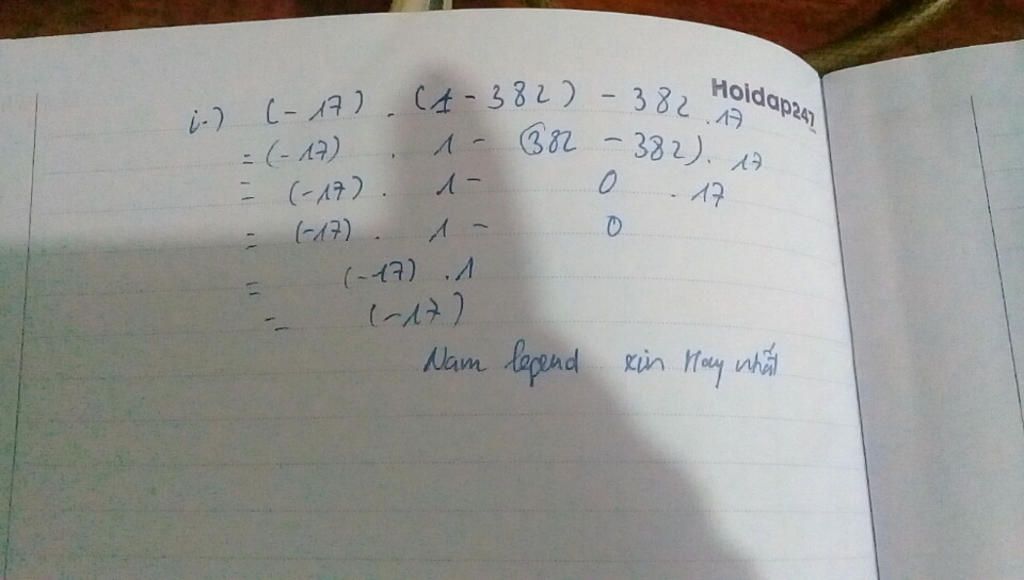 Hoidap247
i.) (-17) . (1 - 382) - 382 . 17
= (-17) . 1 - (382 - 382) . 17
= (-17) . 1 - 0 . 17
= (-17) . 1 - 0
= (-17) . 1
= (-17)
Nam legend xin Hay nhất